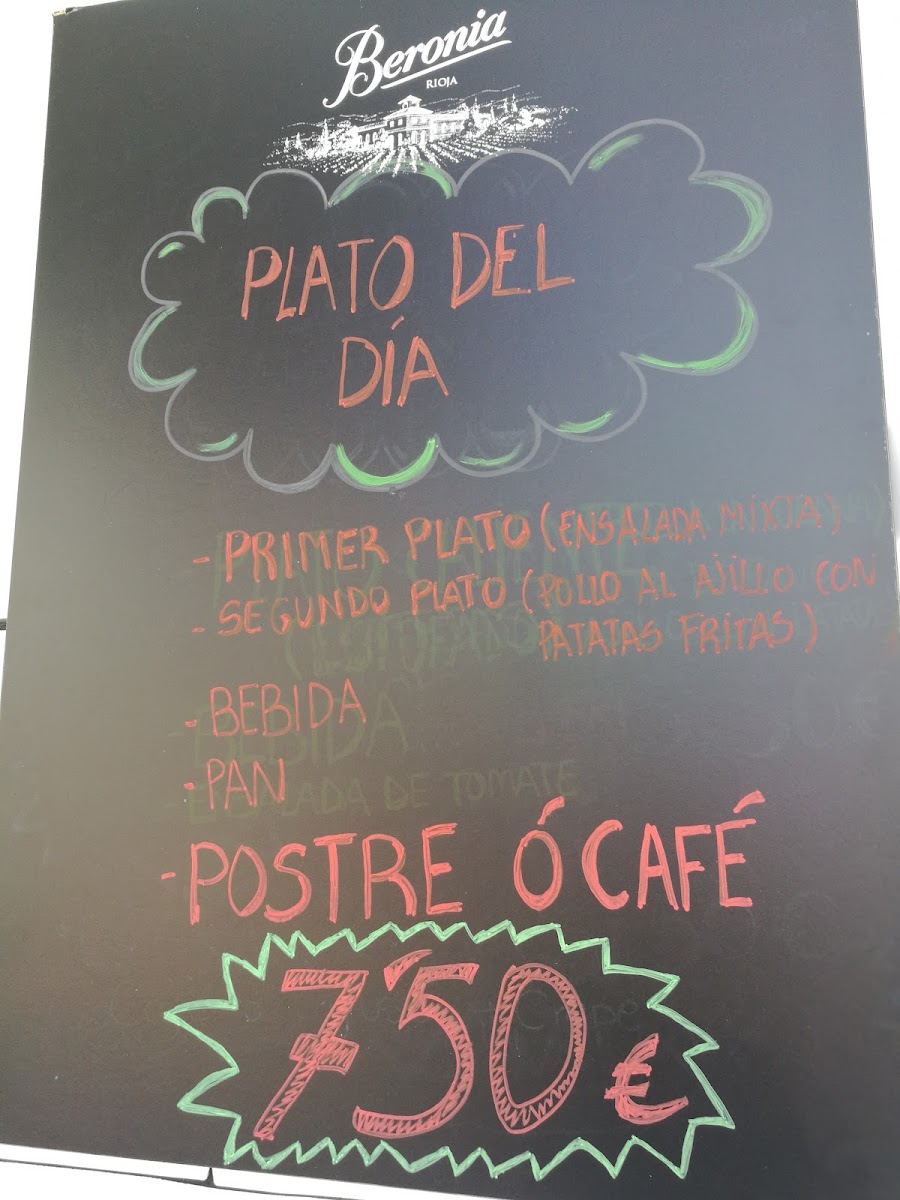 Beronia
RIOJA
PLATO DEL
DÍA
- PRIMER PLATO (ENSALADA MIXTA)
- SEGUNDO PLATO (POLLO AL AJILLO CON
PATATAS FRITAS)
- BEBIDA
- PAN
- POSTRE Ó CAFÉ
7'50 €
BEBIDA
ENSALADA DE TOMATE